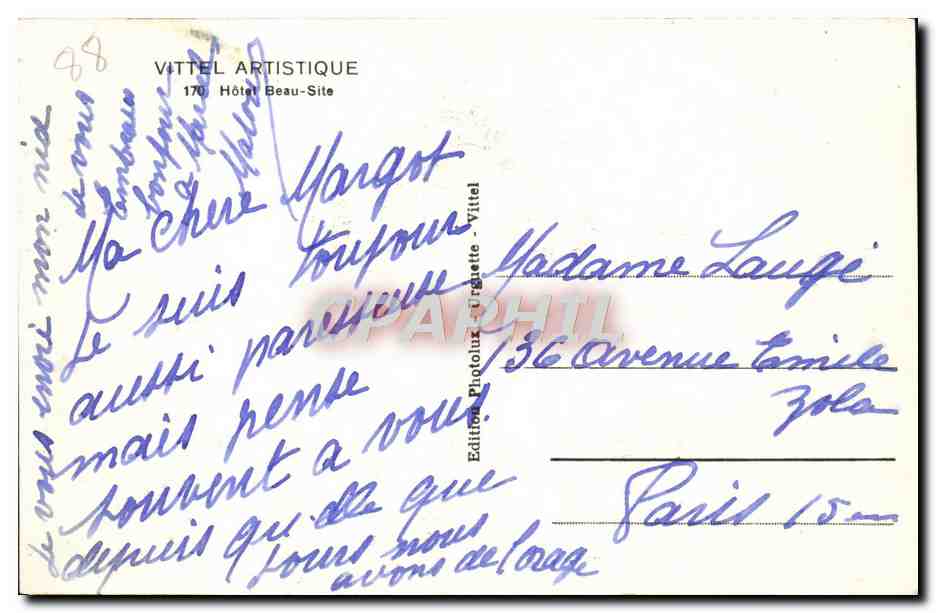 88
VITTEL ARTISTIQUE
170 Hôtel Beau-Site
Ma chere Margot
Je suis toujour
aussi paresseuse
mais pense
souvent a vous.
depuis que
jours nous
avons de l'orage
je vous envoi mon nid
de vous
Embrasse
bonjour
a
Edition Photolux - Urguette - Vittel
Madame Laugé
136 avenue Emile
Zola
Paris 15em
CPAPHIL